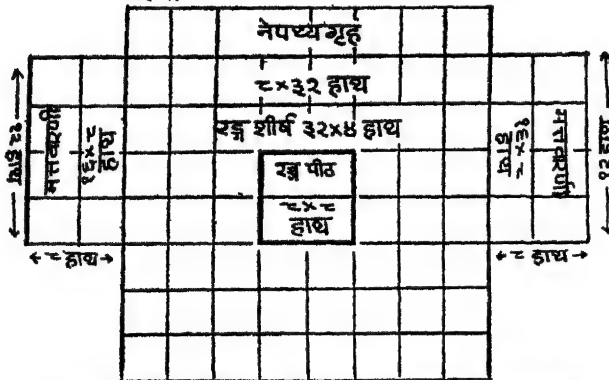 नेपथ्य गृह
८×३२ हाथ
रङ्ग शीर्ष ३२×४ हाथ
रङ्ग पीठ
८×८
हाथ
हाथ
मत्तवरणी
१६×८
हाथ
८ हाथ
१६×८
हाथ
मत्तवरणी
हाथ
८ हाथ